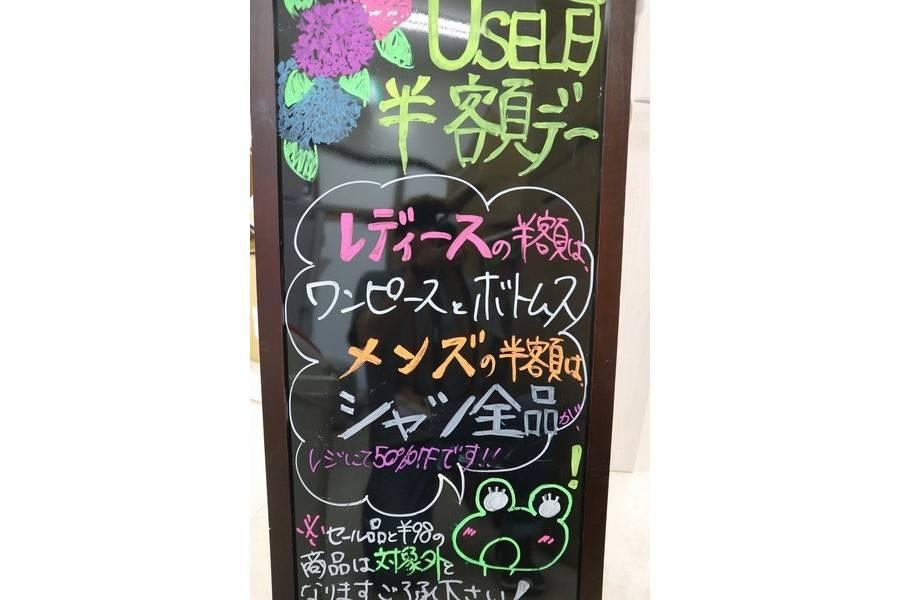 USELET
半額デー
レディースの半額は、
ワンピースとボトムス
メンズの半額は、
シャツ全品が、
レジにて50%OFFです!!
※セール品と¥98の
商品は対象外と
なりますご了承下さい!